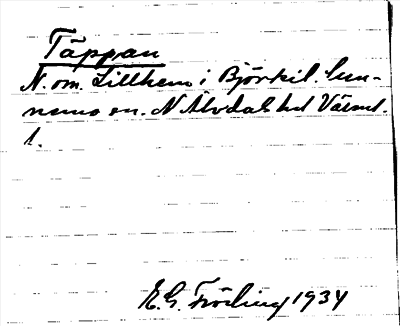 Täppan
N. om. Lillhem i Björkil. Sun-
nemo sn. N Älvdals hd Värml.
l.
E. G. Fröding 1934